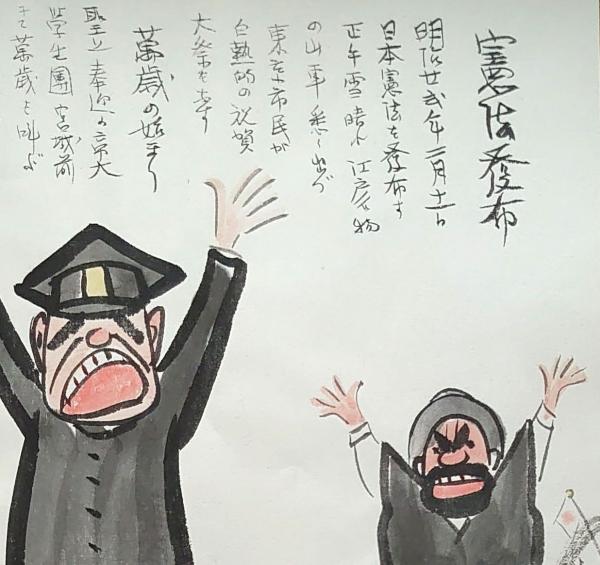 憲法発布
明治廿弐年二月十一日
日本憲法を発布す
正午雪晴れ江戸名物
の山車悉く出づ
東京市民が
白熱的の祝賀
大祭を
萬歳の始まり
聖上奉迎の帝大
学生團宮城前
にて萬歳を叫ぶ